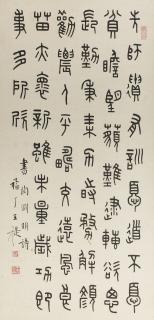 先師遺有訓憂道不憂
貧瞻望邈難逮轉欲
長勤秉耒歡時務解顏
勸農人平疇交遠風良
苗亦懷新雖未量歲功即
事多所欣
書陶淵明詩
福厂王禔